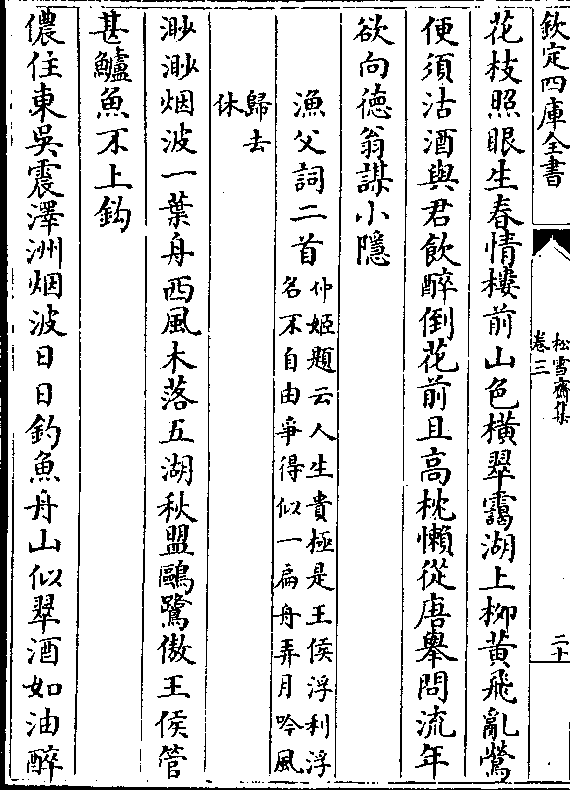 欽定四庫全書
松雪齋集
卷三
二十
花枝照眼生春情樓前山色橫翠靄湖上柳黃飛亂鶯
便須沽酒與君飲醉倒花前且高枕懶從唐舉問流年
欲向德翁謀小隱
漁父詞二首
仲姬題云人生貴極是王侯浮利浮
名不自由爭得似一扁舟弄月吟風
歸去
休
渺渺烟波一葉舟西風木落五湖秋盟鷗鷺傲王侯管
甚鱸魚不上鈎
儂住東吳震澤洲烟波日日釣魚舟山似翠酒如油醉